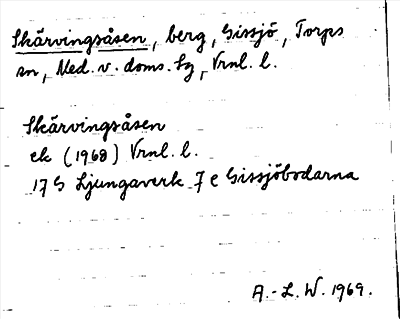 Skärvingsåsen, berg, Gissjö, Torps
sn, Med. v. doms. tg, Vrnl. l.
Skärvingsåsen
ek (1968) Vrnl. l.
17 G Ljungaverk 7 e Gissjöbodarna
A.-L. W. 1969.